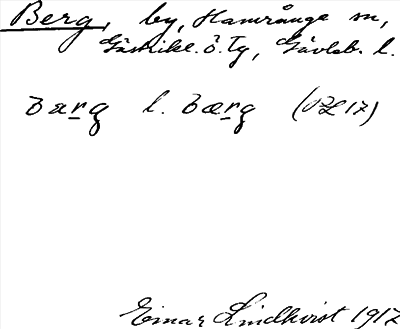 Berg, by, Hamrånge sn,
Gästrikl. ö. Tg, Gävleb. l.
Barg l. Bærg (OL 17)
Einar Lindkvist 1917